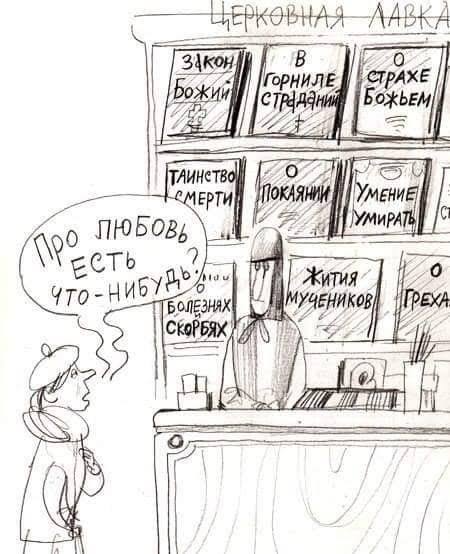 ЦЕРКОВНАЯ ЛАВКА
ЗАКОН
БОЖИЙ
В
ГОРНИЛЕ
СТРАДАНИЙ
О
СТРАХЕ
БОЖЬЕМ
ТАИНСТВО
СМЕРТИ
О
ПОКАЯНИИ
УМЕНИЕ
УМИРАТЬ
СТ
ПРО ЛЮБОВЬ
ЕСТЬ
ЧТО-НИБУДЬ?
О
БОЛЕЗНЯХ
И
СКОРБЯХ
ЖИТИЯ
МУЧЕНИКОВ
О
ГРЕХА